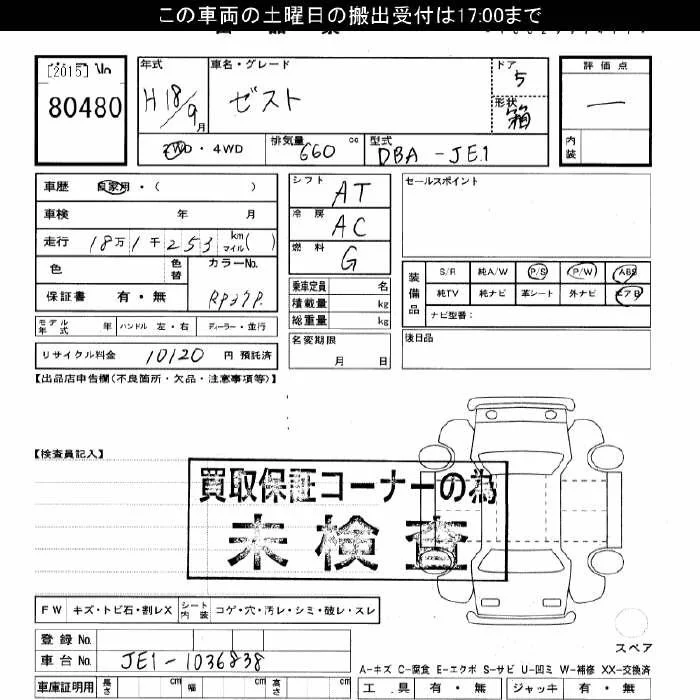 この車両の土曜日の搬出受付は17:00まで
[2015] No
80480
年式 H18/9月
車名・グレード ゼスト
ドア 5
形状 箱
評価点 —
内装
2WD・4WD
排気量 660 cc
型式 DBA-JE1
車歴 自家用・( )
車検 年 月
走行 18万1千253 km マイル( )
色 色替
カラーNo. RP37P
保証書 有・無
モデル年式 年 ハンドル 左・右 ディーラー・並行
リサイクル料金 10120 円 預託済
シフト AT
冷房 AC
燃料 G
乗車定員 名
積載量 kg
総重量 kg
名変期限
月 日
セールスポイント
装備品
S/R 純A/W P/S P/W ABS
純TV 純ナビ 革シート 外ナビ エアB
ナビ型番:
後日品
【出品店申告欄(不良箇所・欠品・注意事項等)】
【検査員記入】
買取保証コーナーの為
未検査
FW キズ・トビ石・割レX シート内装 コゲ・穴・汚レ・シミ・破レ・スレ
登録No.
車台No. JE1-1036838
車庫証明用 長さ cm 幅 cm 高さ cm
スペア
A-キズ C-腐食 E-エクボ S-サビ U-凹ミ W-補修 XX-交換済
工具 有・無 ジャッキ 有・無